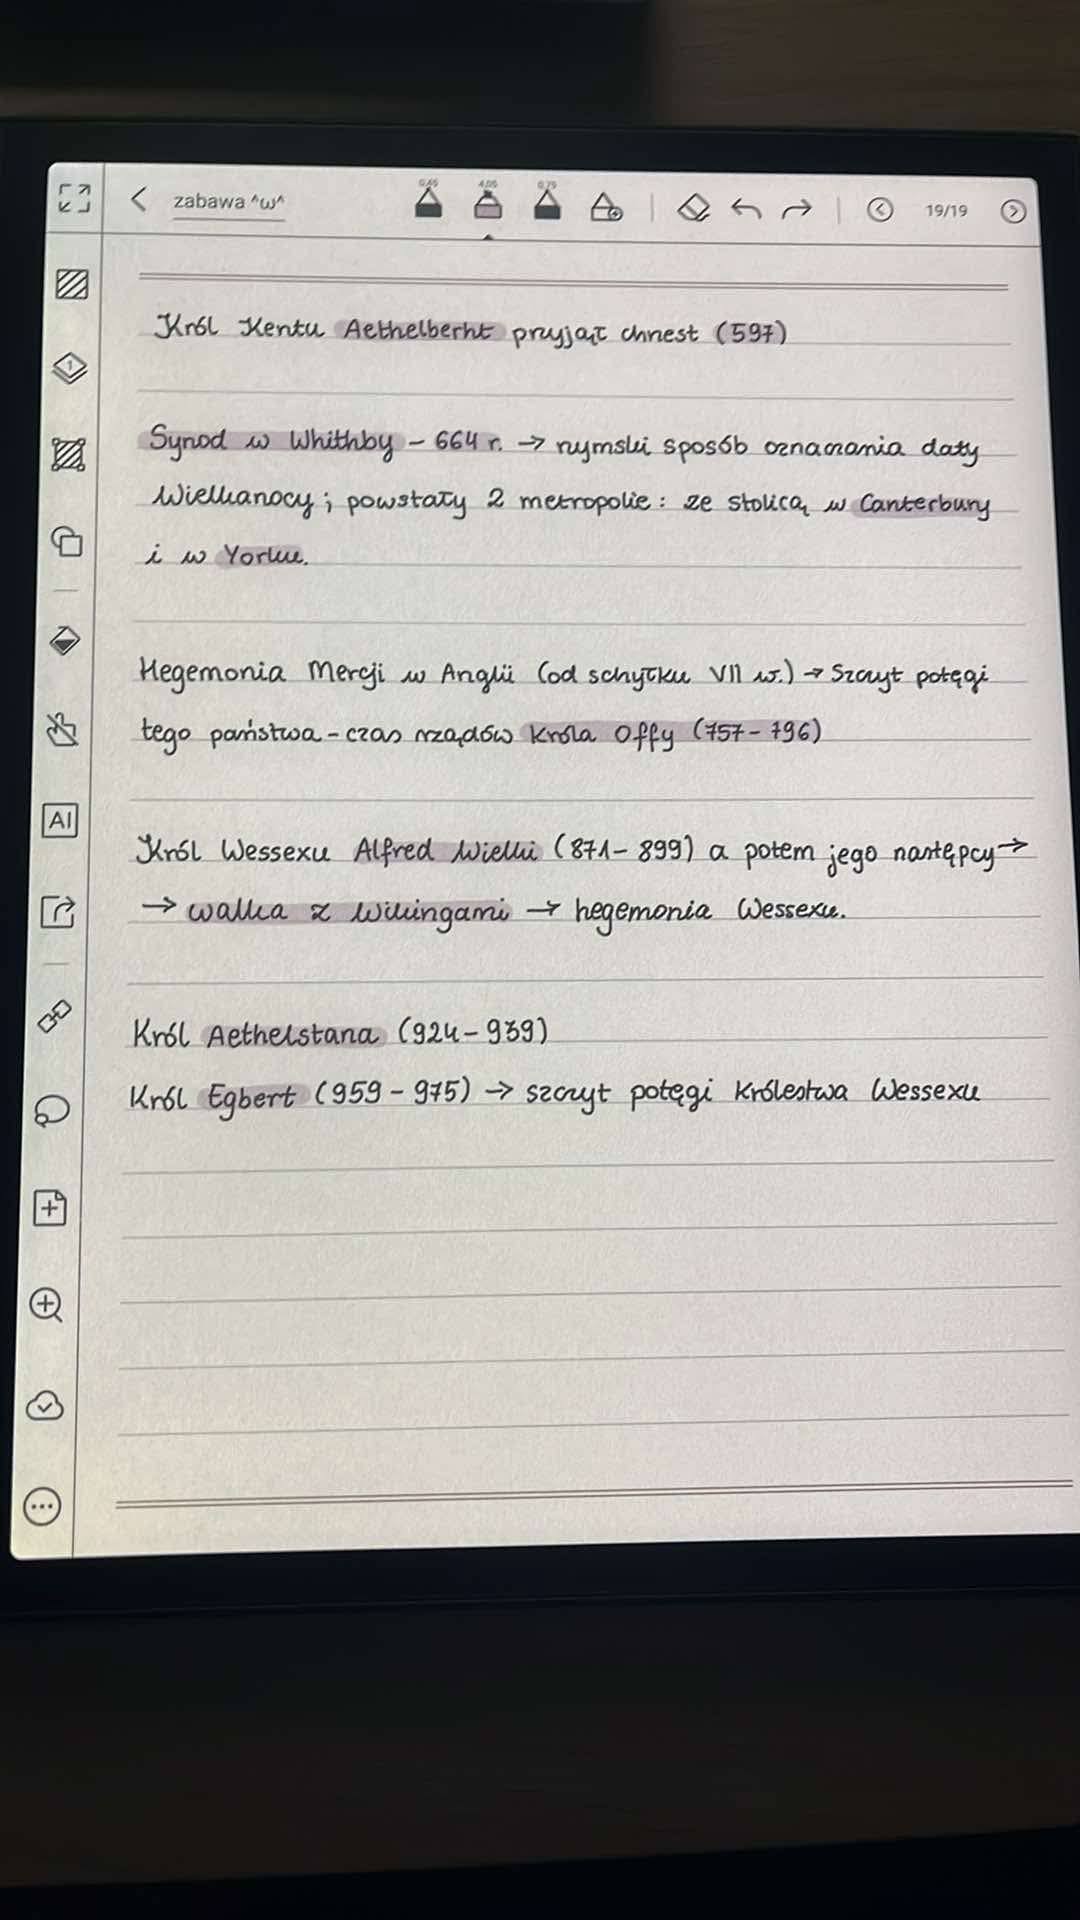 zabawa ^ω^
0,45 4,05 0,75
19/19
Król Kentu Aethelberht przyjął chrzest (597)
Synod w Whithby – 664 r. → rzymski sposób oznaczania daty
Wielkanocy; powstały 2 metropolie: ze stolicą w Canterbury
i w Yorku.
Hegemonia Mercji w Anglii (od schyłku VII w.) → Szczyt potęgi
tego państwa – czas rządów króla Offy (757 – 796)
Król Wessexu Alfred Wielki (871 – 899) a potem jego następcy →
→ walka z Wikingami → hegemonia Wessexu.
Król Aethelstana (924 – 939)
Król Egbert (959 – 975) → szczyt potęgi królestwa Wessexu
1
AI